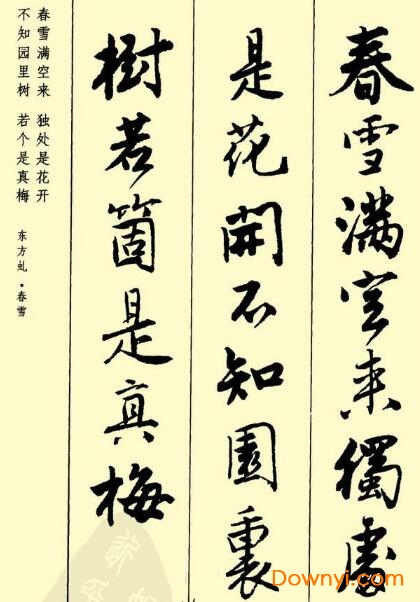 春雪满空来獨處
是花開不知園裏
樹若箇是真梅
春雪满空来 独处是花开
不知园里树 若个是真梅
东方虬·春雪
Downyi.com